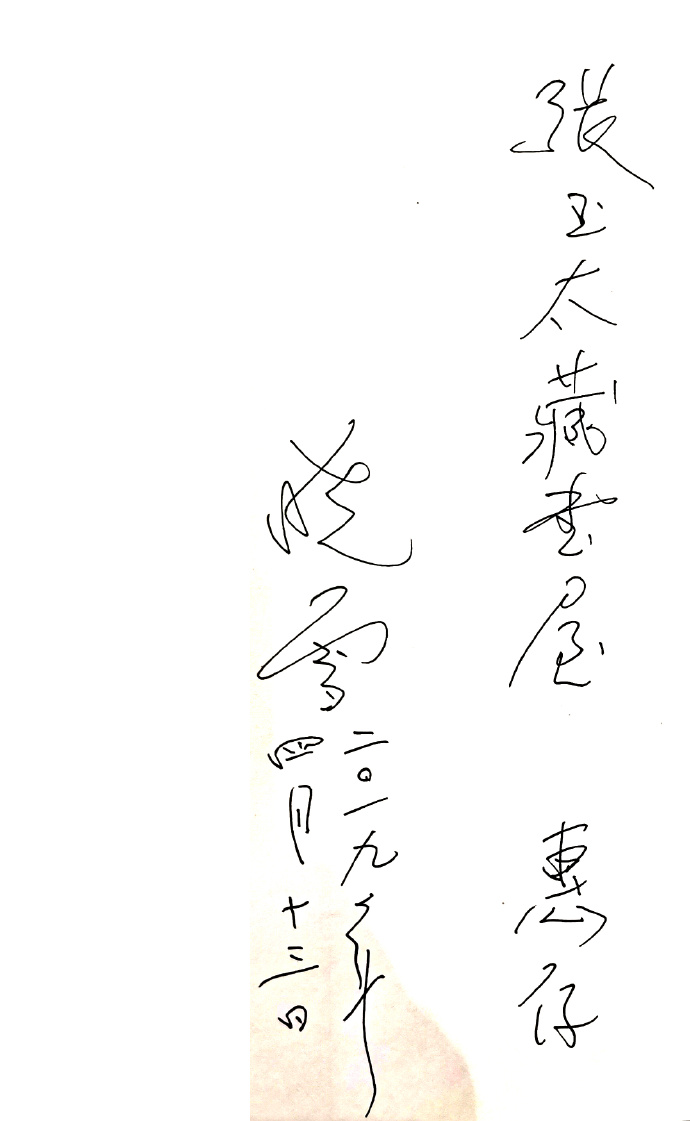 張玉太藏书屋 惠存
晓雪
二〇一九年
四月十三日